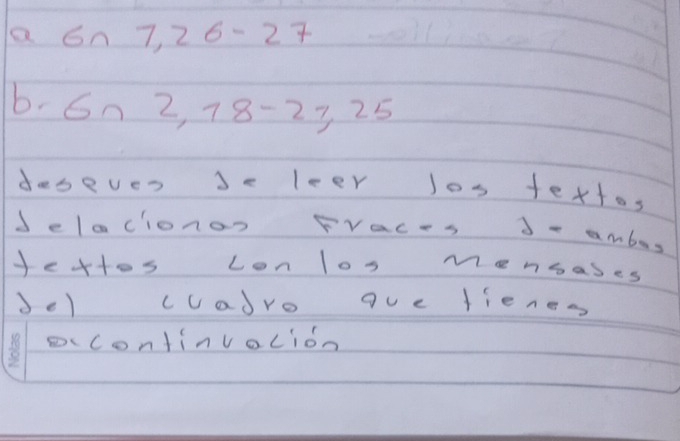 a Gn 1,26-27
b. Gn 2,18-23, 25
despues de leer los textos
relacionas Fraces de ambos
textos con los mensajes
del cuadro que tienes
a continuación
Notas